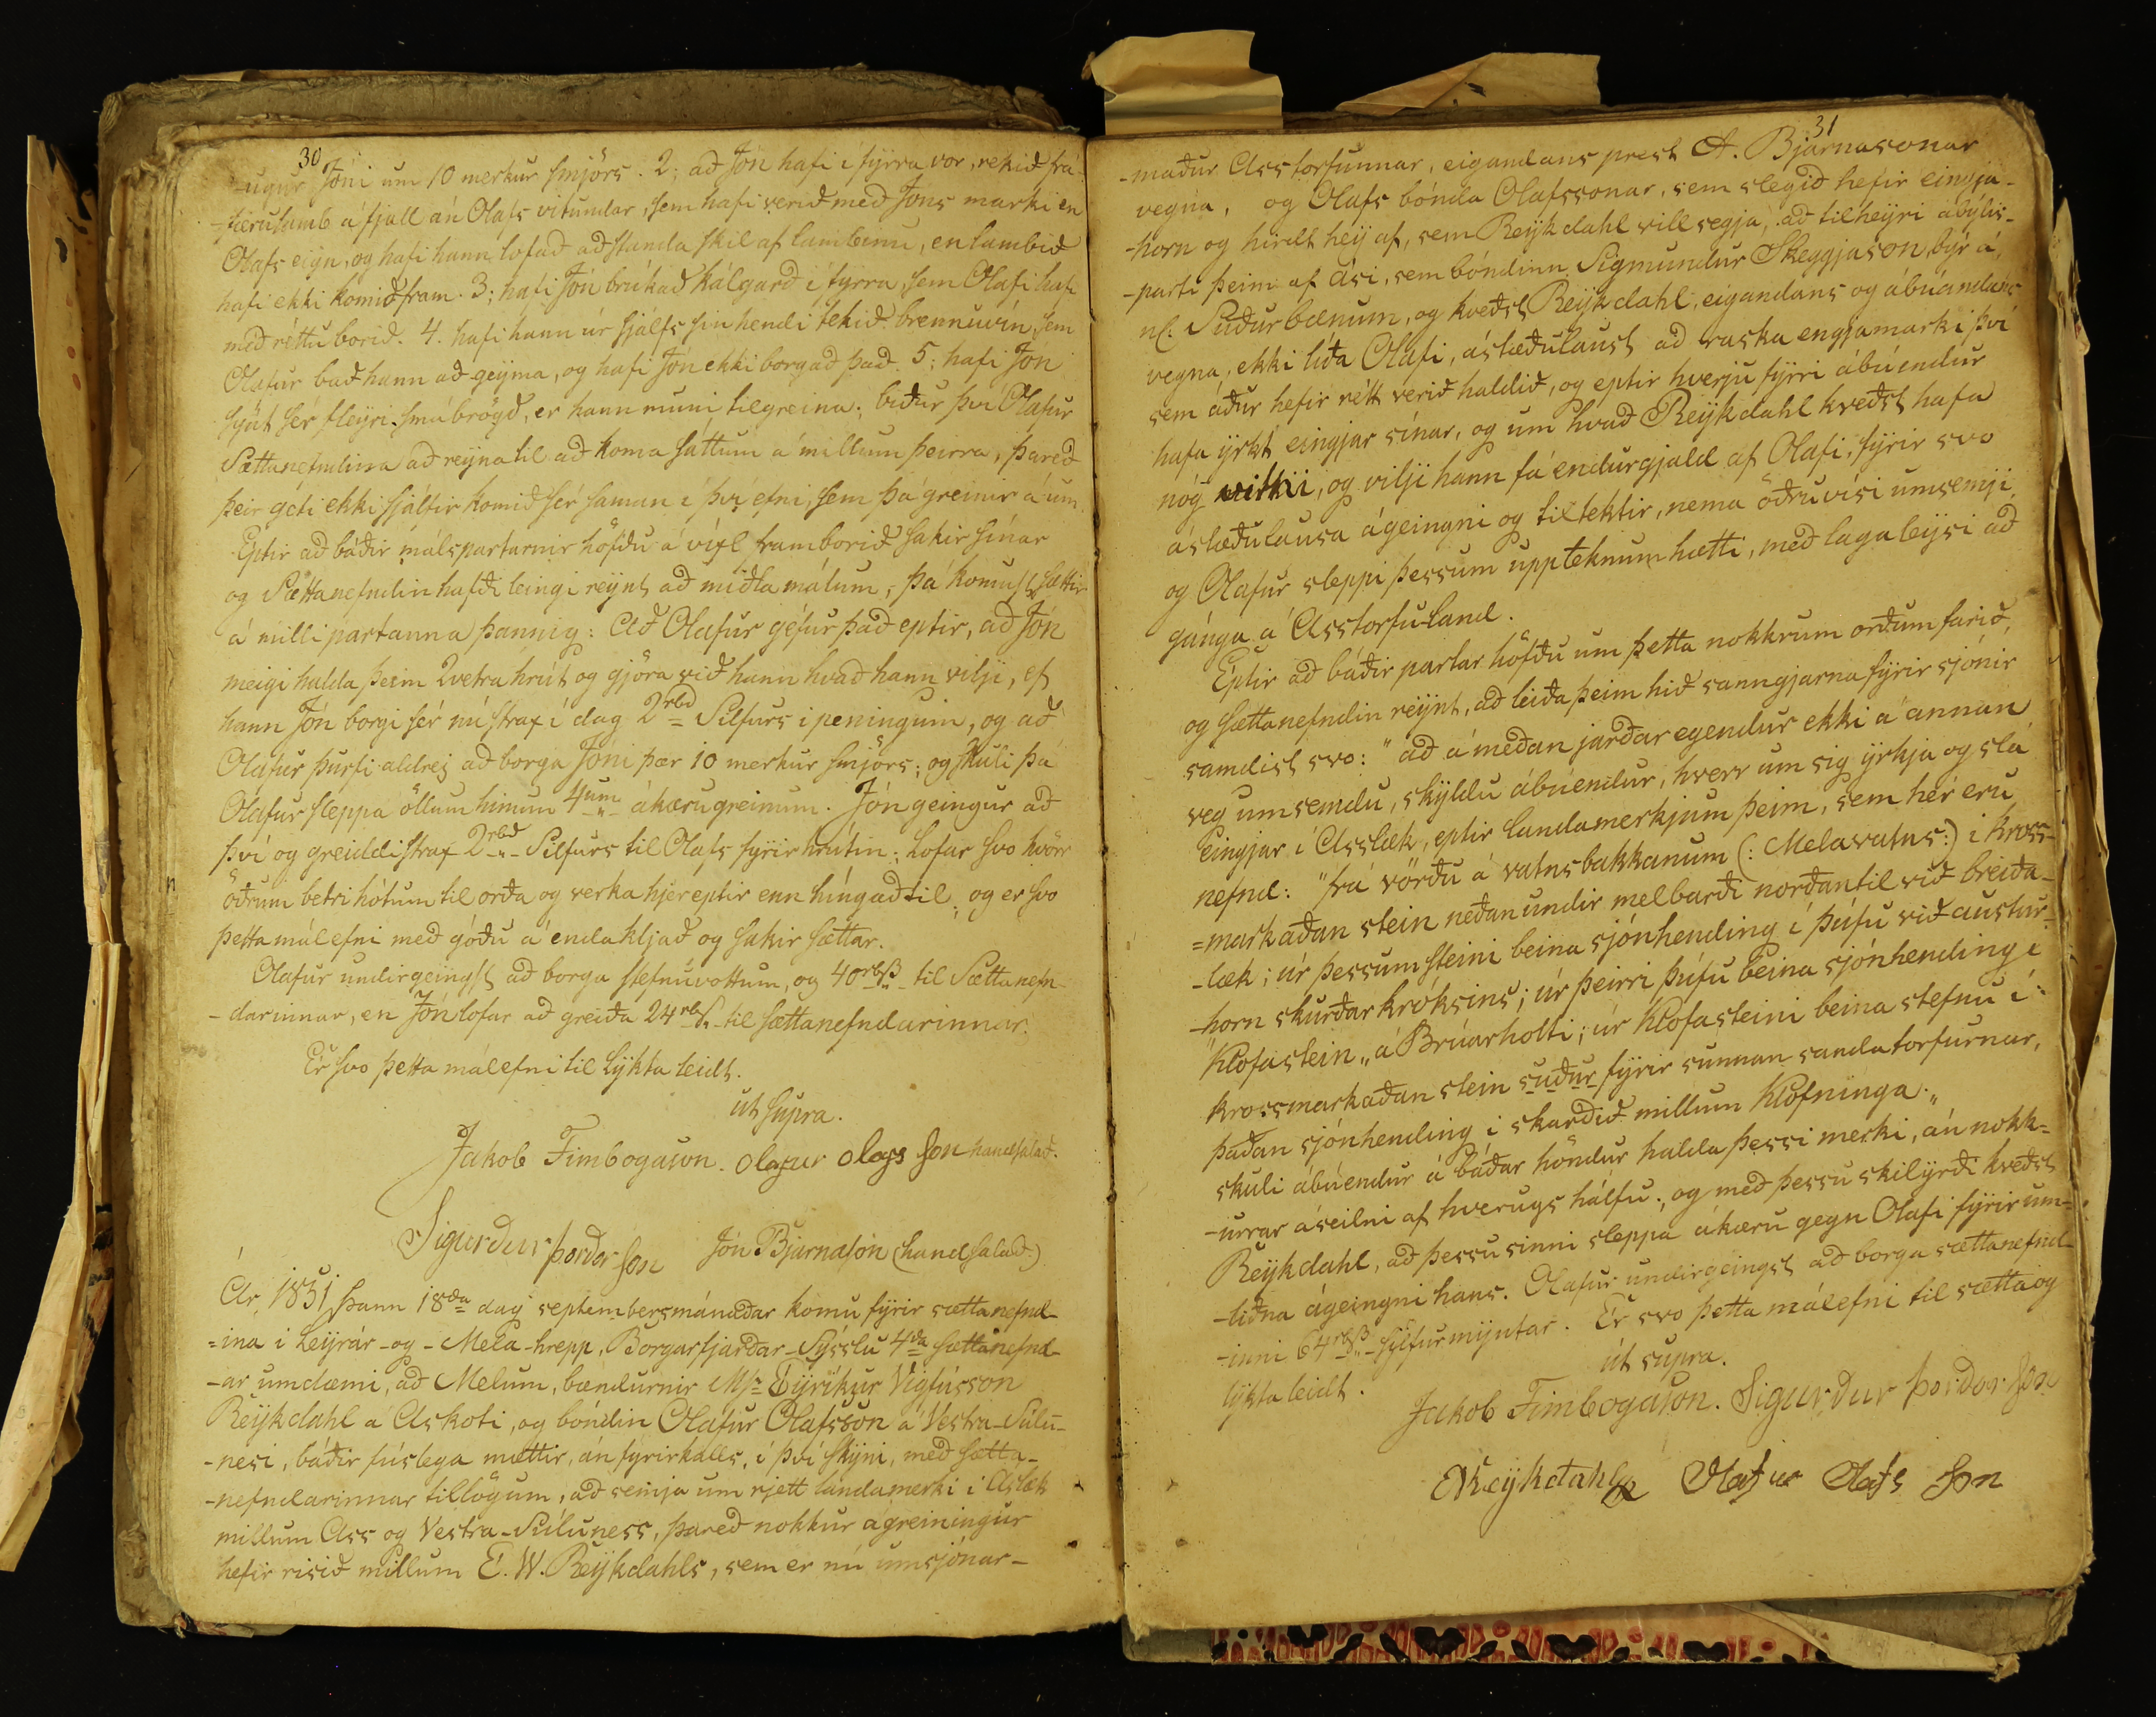 30
-ugur Jóni um 10 merkur smjörs. 2; að Jón hafi í fÿrra vor, rekið frá-
-færulamb á fjall án Olafs vitundar, sem hafi verið með Jóns marki en
Olafs eign, og hafi hann lofað að standa skil af lambinu, en lambið
hafi ekki komið fram. 3; hafi Jón brúkað kálgarð í fyrra, sem Olafi hafi
með réttu borið. 4. hafi hann úr sjálfs sín hendi tekið brennuvín, sem
Olafur bað hann að geÿma, og hafi Jón ekki borgað það. 5; hafi Jón
sýnt sér fleÿri smábrögð, er hann muni tilgreina; biður því Olafur
Sættanefndina að reÿna til að koma sáttum á millum þeirra, þareð
þeir géti ekki sjálfir komið sér saman í því efni, sem þá greinir á um.
Eptir að báðir málspartarnir höfðu á víxl framborið sakir sínar
og Sættanefndin hafði leingi reÿnt að miðla málum, þá komust sættir
á milli partanna þannig: Að Olafur géfur það eptir, að Jón
meigi halda þeim 2vetra hrút og gjöra við hann hvað hann vilji, ef
hann Jón borgi sér nú strax í dag 2rbd Silfurs í peningum, og að
Olafur þurfi aldrej að borga Jóni þær 10 merkur smjörs; og skuli þá
Olafur sleppa öllum hinum 4um ákærugreinum. Jón geingur að
því og greiddi strax 2rbd Silfurs til Olafs fyrir hrútin; Lofar svo hvör
öðrum betri hótum til orða og verka hjereptir enn híngað til, og er svo
þetta málefni með góðu á enda kljáð og sakir sættar.
Olafur undirgeingst að borga stefnuvottum, og 40rbß til Sættanefn-
-darinnar, en Jón lofar að greiða 24rbß til sættanefndarinnar.
Er svo þetta málefni til lÿkta leidt.
ut supra.
Jakob Finnbogason. Olafur Olafs Son handsalað.
Sigurdur þordar Son Jón Bjarnason (handsalað)
Ár 1831, þann 18da dag septembersmánaðar komu fÿrir sættanefnd-
=ina í Leÿrár-og-Mela-hrepp, Borgarfjarðar-Sÿsslu 4da sættanefnd-
-ar umdæmi, að Melum, bændurnir Mr Eÿríkur Vigfússon
Reÿkdahl á Áskoti, og bóndin Olafur Olafsson á Vestra-Súlu-
-nesi, báðir fúslega mættir, án fÿrirkalls, í því skÿni, með sætta-
-nefndarinnar tillögum, að semja um rjett landamerki í Áslæk
millum Áss og Vestra-Súluness, þareð nokkur ágreiningur
hefir risið millum E. W. Reÿkdahls, sem er nú umsjónar-
31
-maður Ásstorfunnar, eigandans prest A. Bjarnasonar
vegna, og Olafs bónda Olafssonar, sem slegið hefir eingja-
-horn og hirdt heÿ af, sem Reÿkdahl vill segja, að tilheÿri ábýlis-
-parti þeim af Ási, sem bóndinn Sigmundur Skeggjason býr á,
nl. Suðurbænum, og kveðst Reÿkdahl, eigandans og ábúandans
vegna, ekki líða Olafi, ástæðulaust að raska engjamarki því
sem áður hefir rétt verið haldið, og eptir hverju fÿrri ábúendur
hafa ÿrkt eingjar sínar, og um hvað Reÿkdahl kveðst hafa
nóg vitni, og vilji hann fá endurgjald af Olafi, fÿrir svo
ástæðulausa ágeingni og tiltektir, nema öðruvísi umsemji,
og Olafur sleppi þessum uppteknum hætti, með lagaleÿsi að
gánga á Ásstorfu-land.
Eptir að báðir partar höfðu um þetta nokkrum orðum farið,
og sættanefndin reÿnt, að leiða þeim hið sanngjarna fÿrir sjónir
samdist svo: "að á meðan jarðaregendur ekki á annan
veg umsemdu, skÿldu ábúendur, hverr um sig ÿrkja og slá
eingjar í Ásslæk, eptir landamerkjum þeim, sem hér eru
nefnd: "frá vörðu á vatnsbakkanum (: Melavatns:) í kross-
=markaðan stein neðanundir melbarði norðantil við breiða-
-læk; úr þessum steini beina sjónhending í þúfu við austur-
-horn skurðarkróksins; úr þeirri þúfu beina sjónhending í
"Klofastein„ á Brúarholti; úr Klofasteini beina stefnu í
krossmarkaðan stein suður fÿrir sunnan sandatorfurnar,
þaðan sjónhending í skarðið millum Klofninga.„
skuli ábúendur á báðar höndur halda þessi merki, án nokk-
-urrar áseilni af hverugs hálfu; og með þessu skilÿrði kveðst
Reÿkdahl, að þessu sinni sleppa ákæru gegn Olafi fÿrir um-
-liðna ágeingni hans. Olafur undirgeingst að borga sættanefnd-
-inni 64rbß silfurmÿntar. Er svo þetta málefni til sætta og
lÿkta leidt.
út supra.
Jakob Finnbogason. Sigurdur þordar Son
Reÿkdahl Olafur Olafs Son